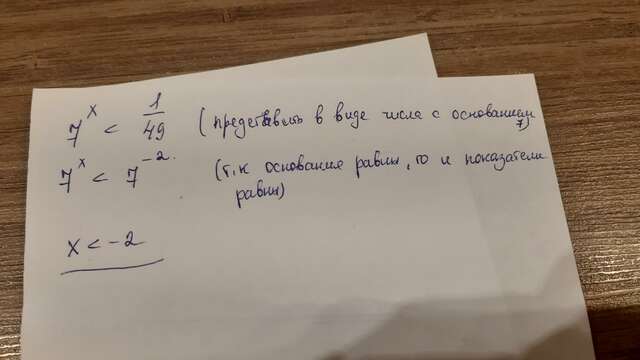 7^x < 1/49 (представить в виде числа с основанием 7)
7^x < 7^-2. (т.к основания равны, то и показатели
равны)
x < -2